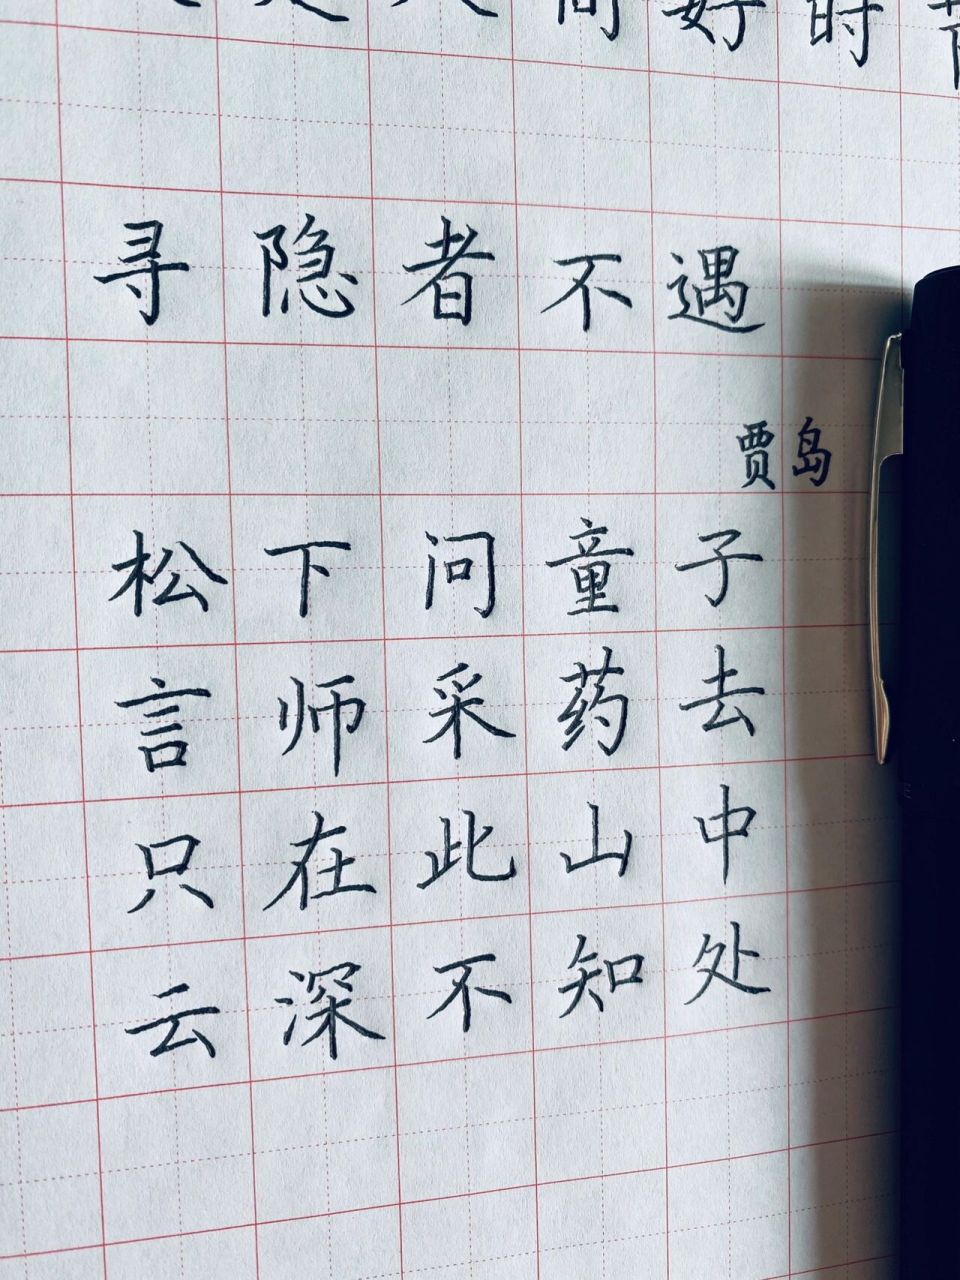 是人间好时节
寻隐者不遇
贾岛
松下问童子
言师采药去
只在此山中
云深不知处